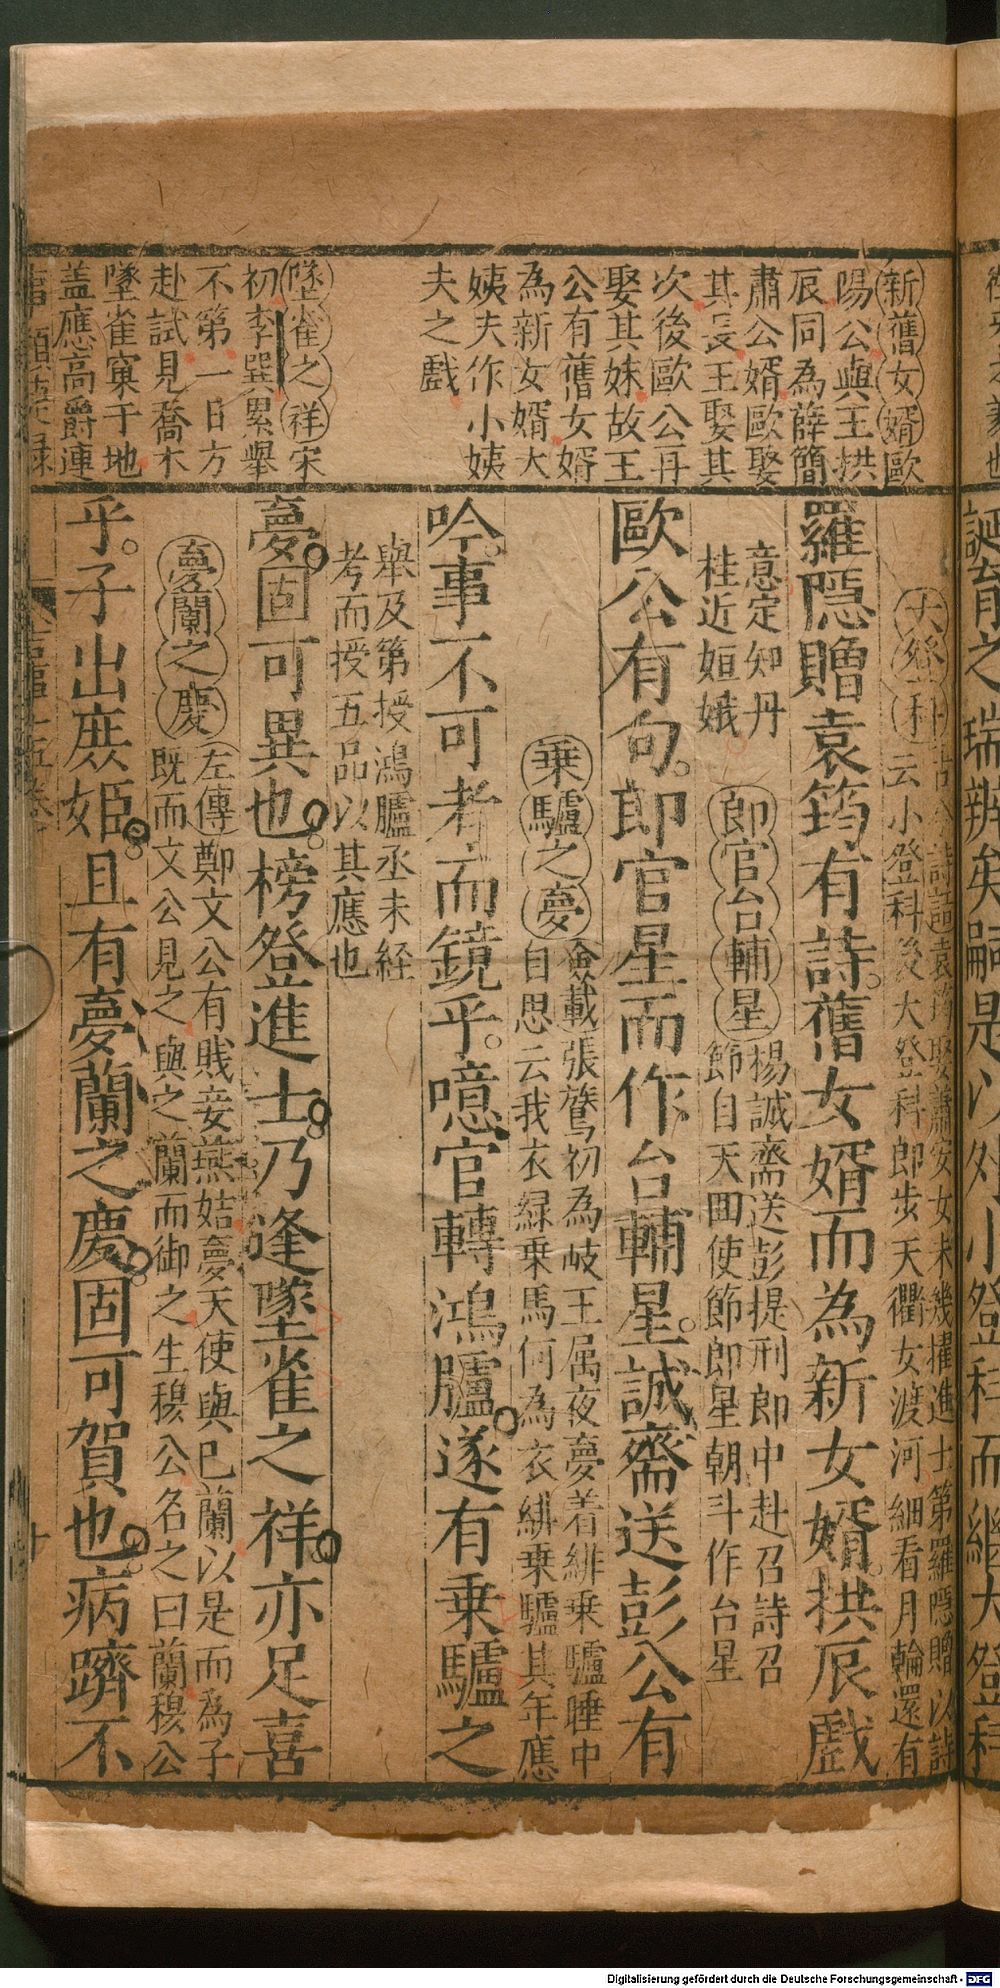 新舊女婿歐
陽公與王拱
辰同為薛簡
肅公婿歐娶
其長王娶其
次後歐公再
娶其妹故王
公有舊女婿
為新女婿大
姨夫作小姨
夫之戲
墜雀之祥宋
初李巽累舉
不第一日方
赴試見喬木
墜雀窠于地
蓋應高爵連
詩話袁筠娶蕭安女未幾擢進士第羅隱贈以詩
云小登科後大登科即步天衢女渡河細看月輪還有
羅隱贈袁筠有詩舊女婿而為新女婿拱辰戲
意定知丹
桂近姮娥
即官台輔星
楊誠齋送彭提刑郎中赴召詩召
節自天回使節郎星朝斗作台星
歐公有句郎官星而作台輔星誠齋送彭公有
乘驢之夢
僉載張鷟初為岐王属夜夢着緋乗驢睡中
自思云我衣綠乗馬何為衣緋乗驢其年應
吟事不可考而鏡乎噫官轉鴻臚遂有乘驢之
舉及第授鴻臚丞未経
考而授五品以其應也
夢固可異也榜登進士乃逢墜雀之祥亦足喜
夢蘭之慶
左傳鄭文公有賎妾燕姞夢天使與己蘭以是而為子
既而文公見之與之蘭而御之生穆公名之曰蘭穆公
乎子出庶姬且有夢蘭之慶固可賀也病躋不
十
誕育之瑞辨矣嗣是以外小登科而繼大登科
Digitalisierung gefördert durch die Deutsche Forschungsgemeinschaft - DFG